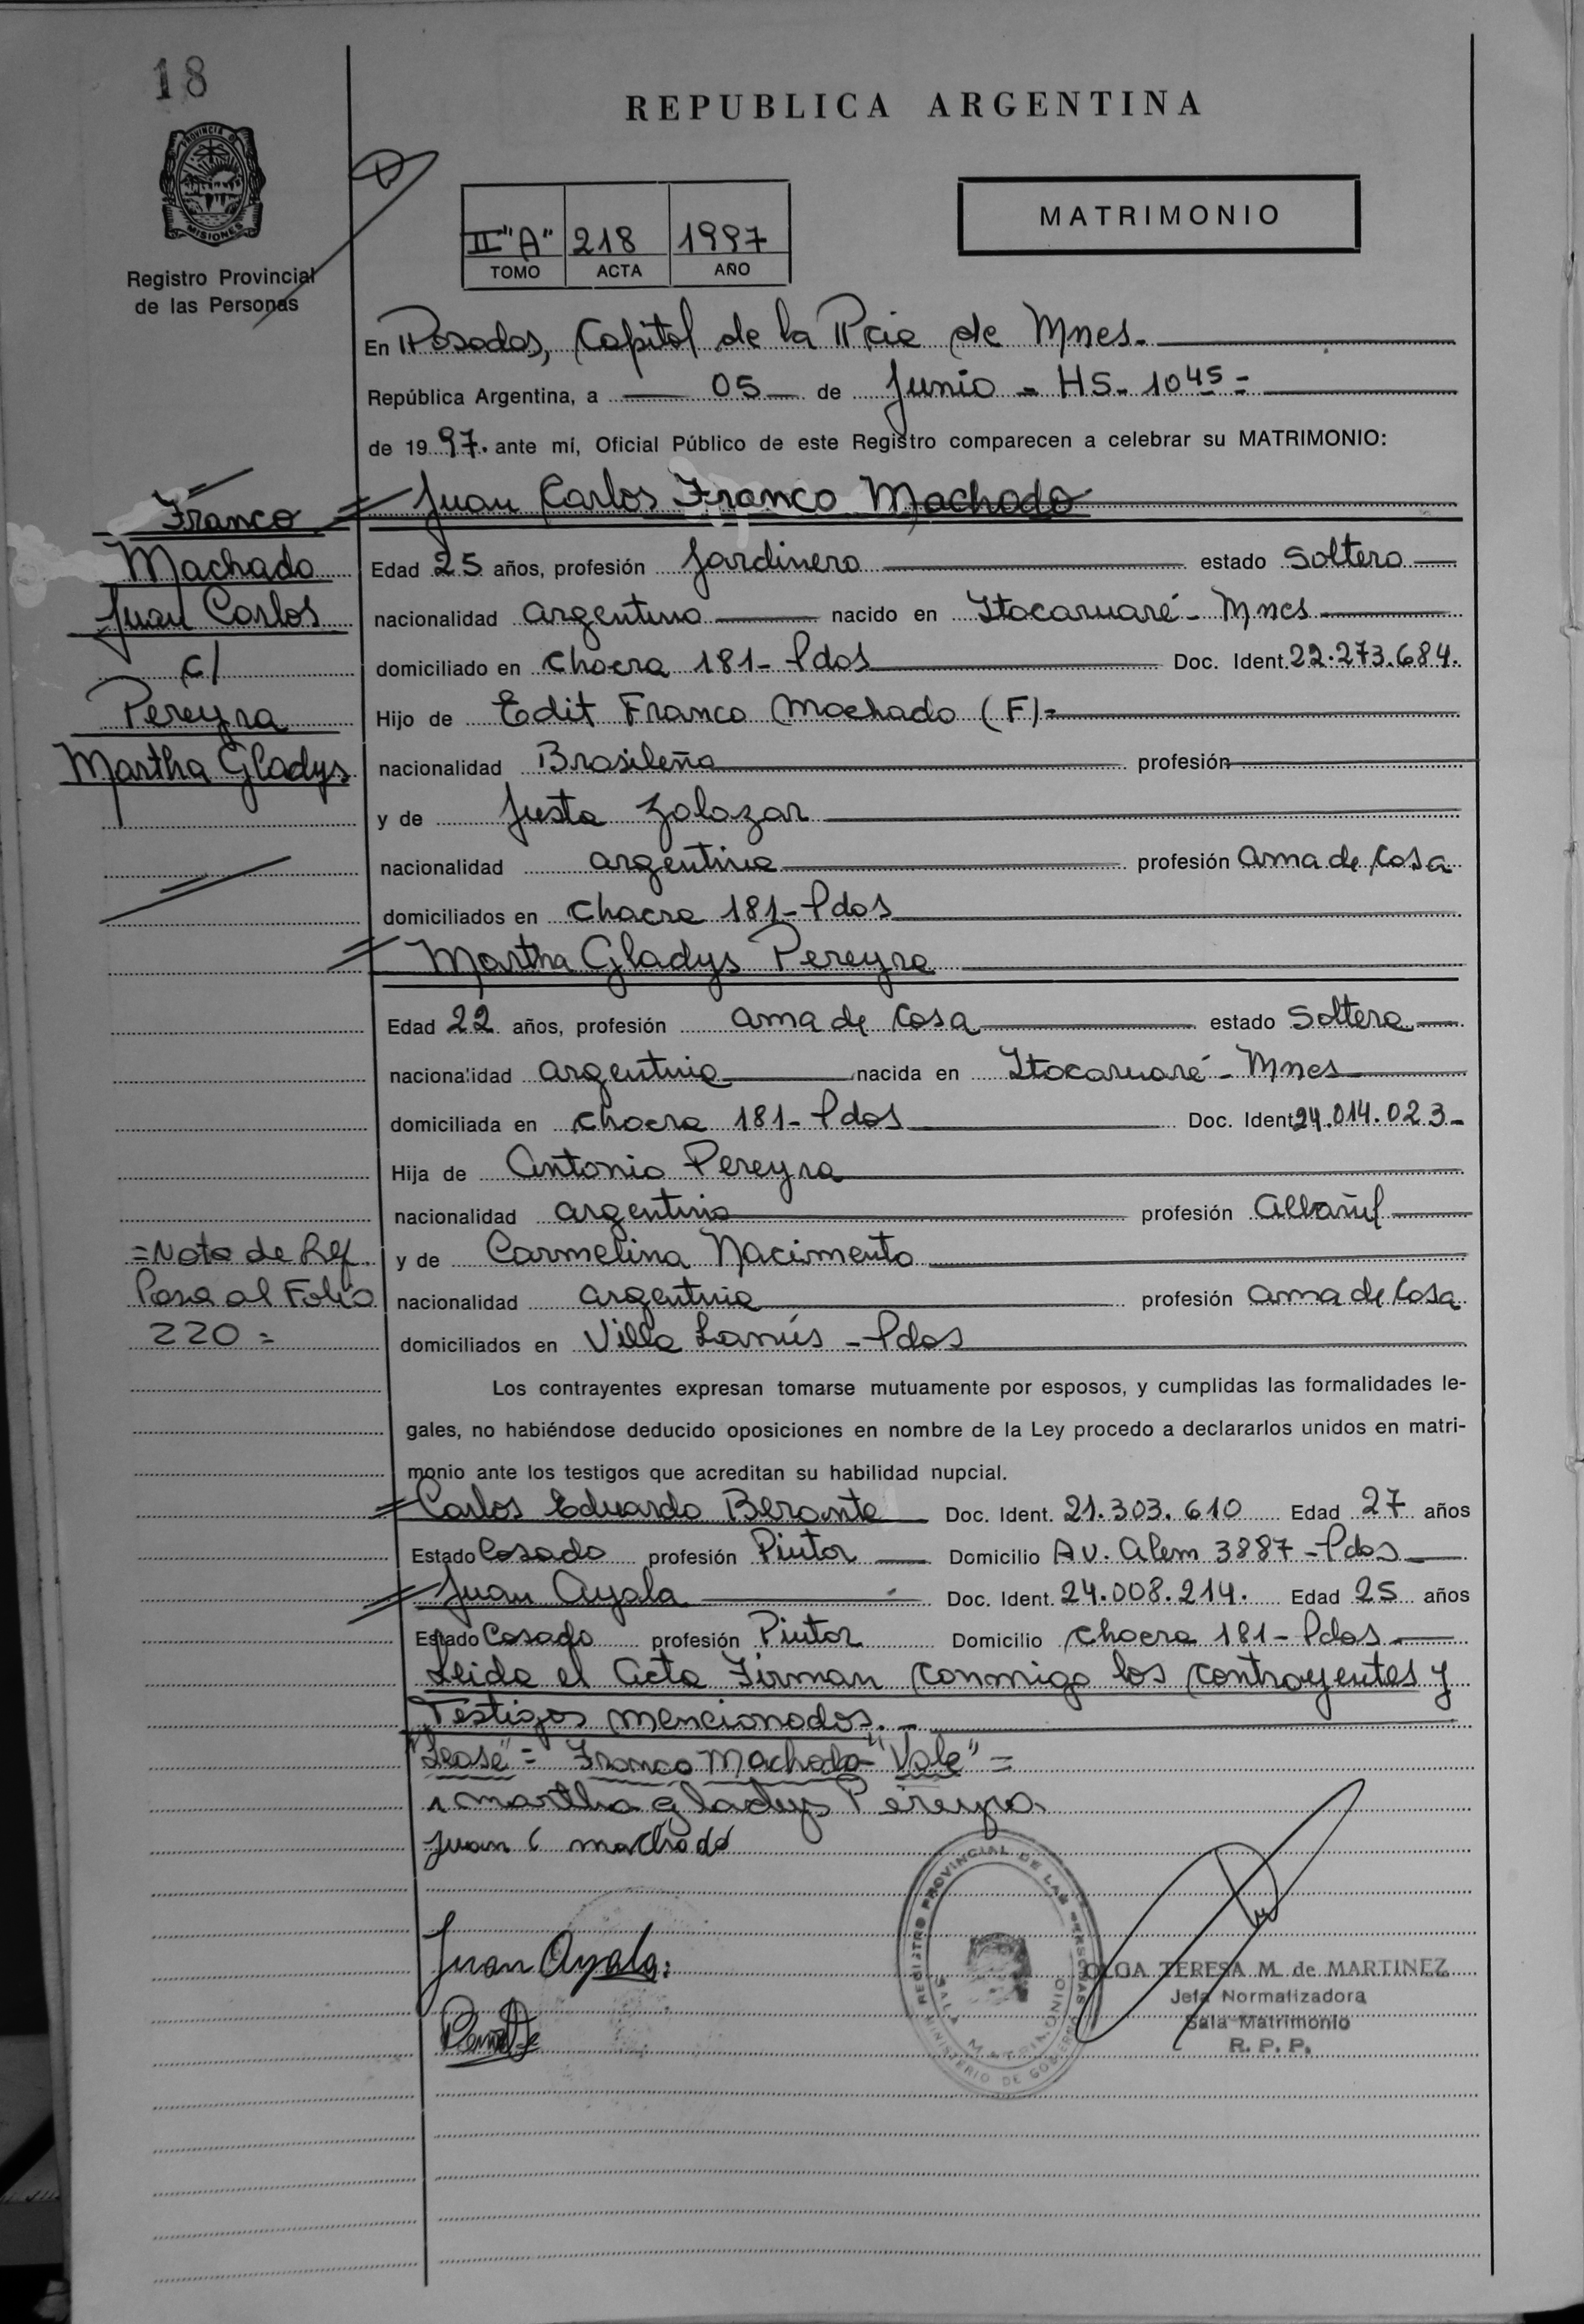 18
REPUBLICA ARGENTINA
PROVINCIA D
MISIONES
Registro Provincial
de las Personas
II "A" 218 1997
TOMO ACTA AÑO
MATRIMONIO
En Posadas, Capital de la Pcia de Mnes.
República Argentina, a 05 de Junio - HS. 10 45 =
de 1997. ante mí, Oficial Público de este Registro comparecen a celebrar su MATRIMONIO:
Juan Carlos Franco Machado
Edad 25 años, profesión Jardinero estado Soltero
nacionalidad argentino nacido en Itacaruaré - Mnes
domiciliado en chacra 181 - Pdas Doc. Ident. 22.273.684.
Hijo de Edit Franco Machado (F) =
nacionalidad Brasileña profesión
y de Justa Zalazar
nacionalidad argentina profesión ama de Casa
domiciliados en chacra 181 - Pdas
Martha Gladys Pereyra
Edad 22 años, profesión ama de Casa estado Soltera
nacionalidad argentina nacida en Itacaruaré - Mnes
domiciliada en chacra 181 - Pdas Doc. Ident 24.014.023 -
Hija de Antonio Pereyra
nacionalidad argentino profesión albañil
y de Carmelina Nacimento
nacionalidad argentina profesión ama de Casa
domiciliados en Villa Lanús - Pdas
Los contrayentes expresan tomarse mutuamente por esposos, y cumplidas las formalidades le-
gales, no habiéndose deducido oposiciones en nombre de la Ley procedo a declararlos unidos en matri-
monio ante los testigos que acreditan su habilidad nupcial.
Carlos Eduardo Beronte Doc. Ident. 21.303.610 Edad 27 años
Estado Casado profesión Pintor Domicilio Av. Alem 3887 - Pdas
Juan Ayala Doc. Ident. 24.008.214. Edad 25 años
Estado Casado profesión Pintor Domicilio chacra 181 - Pdas
Leída el Acta Firman conmigo los contrayentes y
Testigos mencionados. -
"Lease" = Franco Machado "Vale" =
martha gladys Pereyra
Juan C machado
Juan Ayala
REGISTRO PROVINCIAL DE LAS PERSONAS
SALA MATRIMONIO
MINISTERIO DE GOBIERNO
OLGA TERESA M. de MARTINEZ
Jefa Normatizadora
Sala Matrimonio
R. P. P.
Franco
Machado
Juan Carlos
c/
Pereyra
Martha Gladys
= Nota de Ref.
Pasa al Folio
220 =